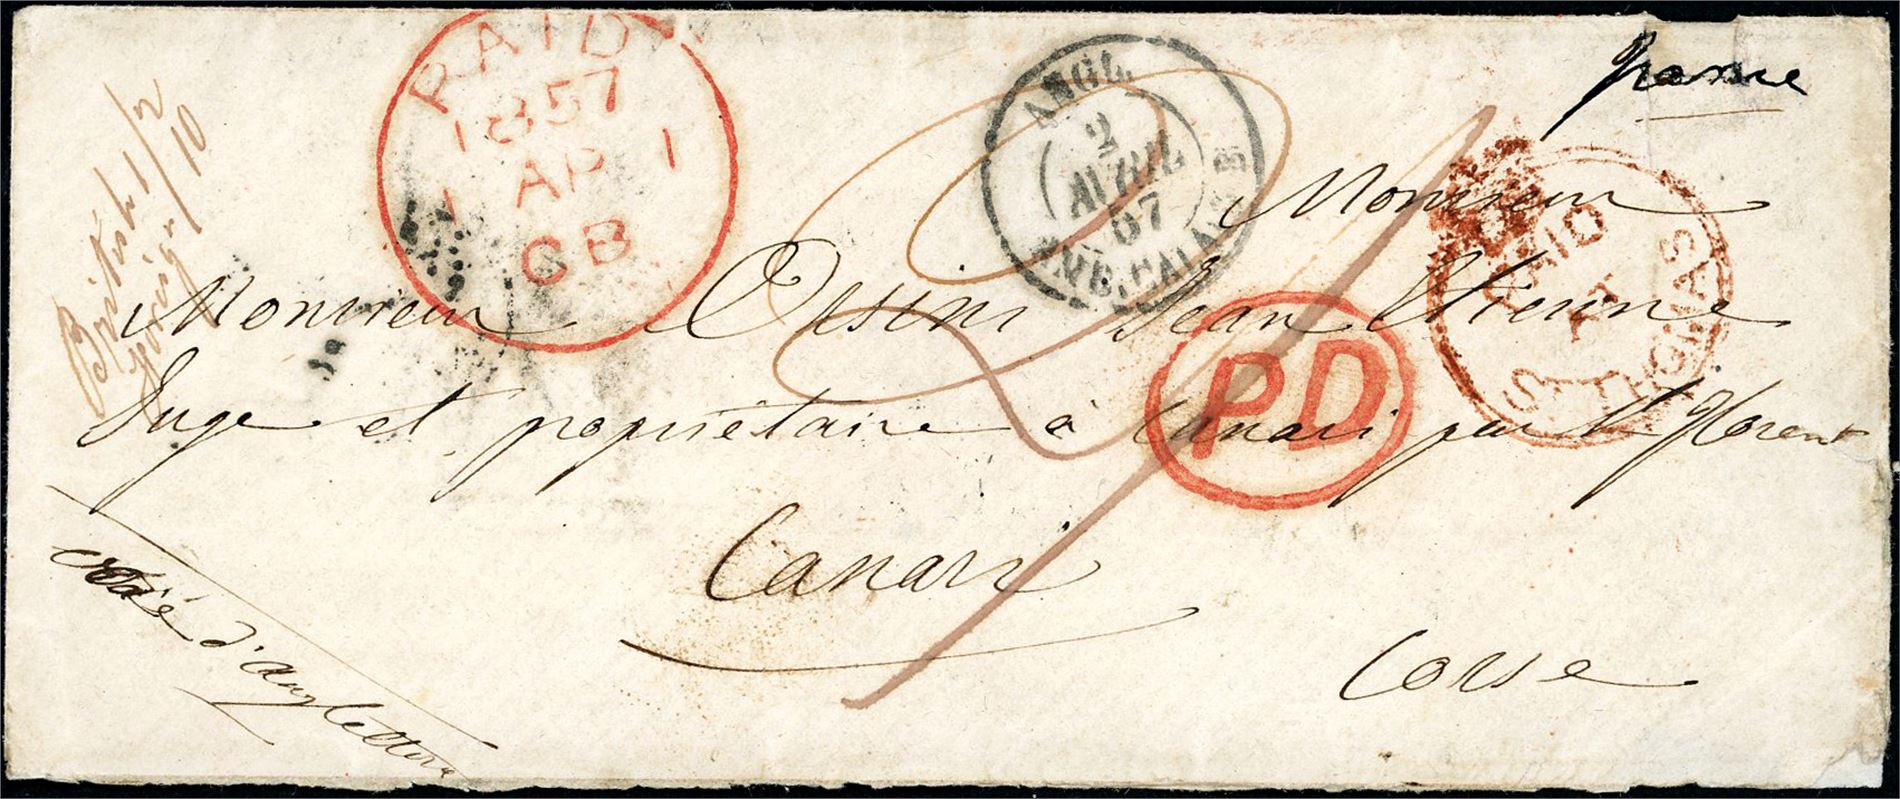 PAID
1857
1 AP 1
CB
ANGL.
2
AVRIL
57
AMB. CALAIS B
PAID
ST THOMAS
PD
British 1/2
foreign /10
france
Monsieur
Monsieur Orsini Jean Etienne
Juge et propriétaire à Canari par St florent
Canari
Corse
voie d'angleterre